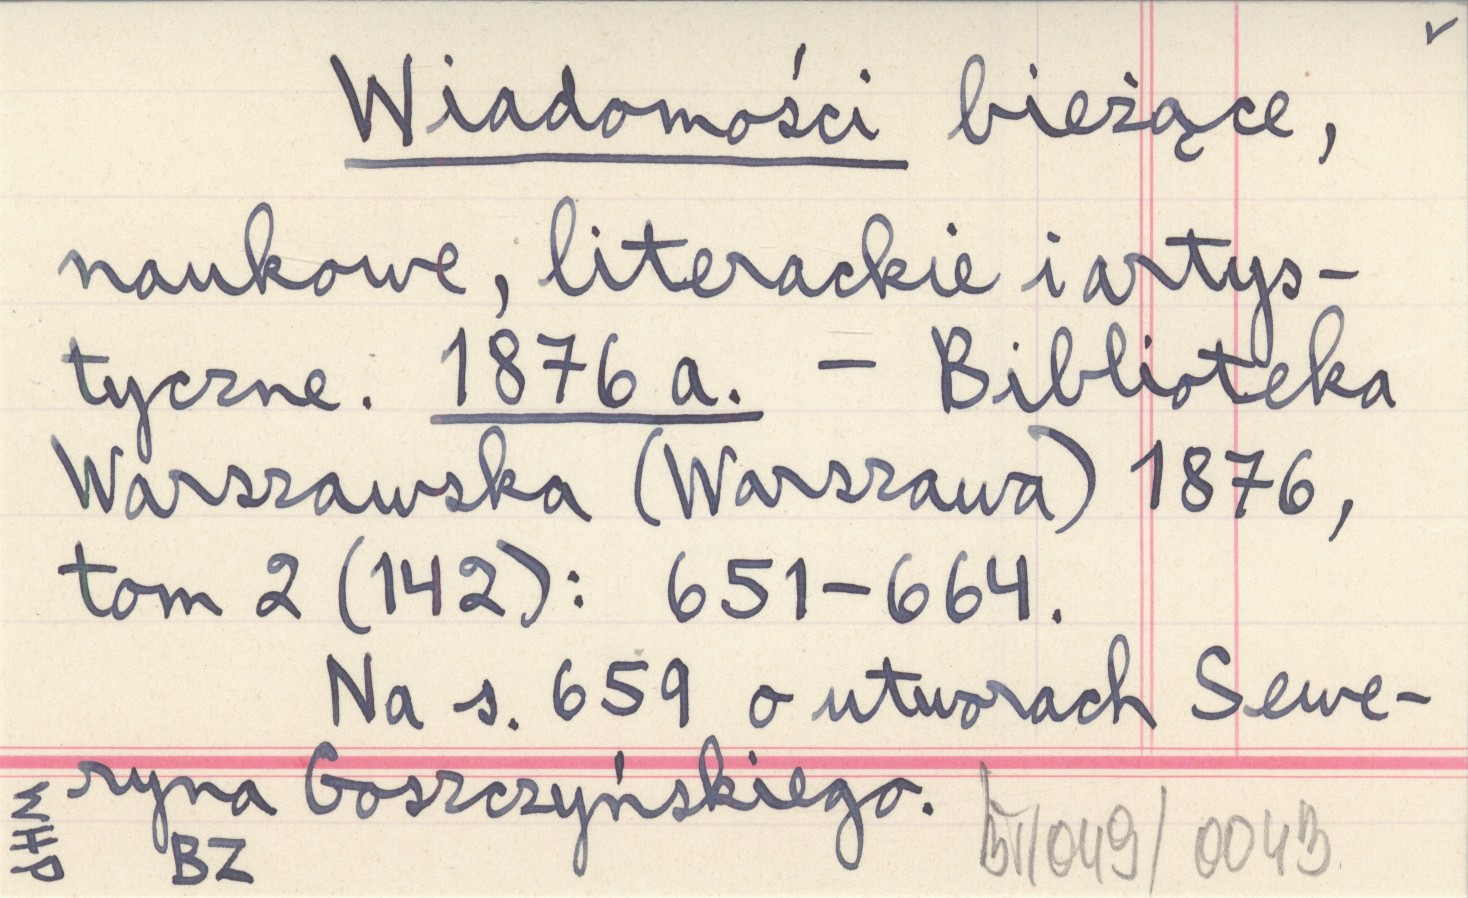 Wiadomości bieżące,
naukowe, literackie i artys-
tyczne. 1876 a. – Biblioteka
Warszawska (Warszawa) 1876,
tom 2 (142): 651–664.
Na s. 659 o utworach Sewe-
ryna Goszczyńskiego.
BZ
/049/ 0043